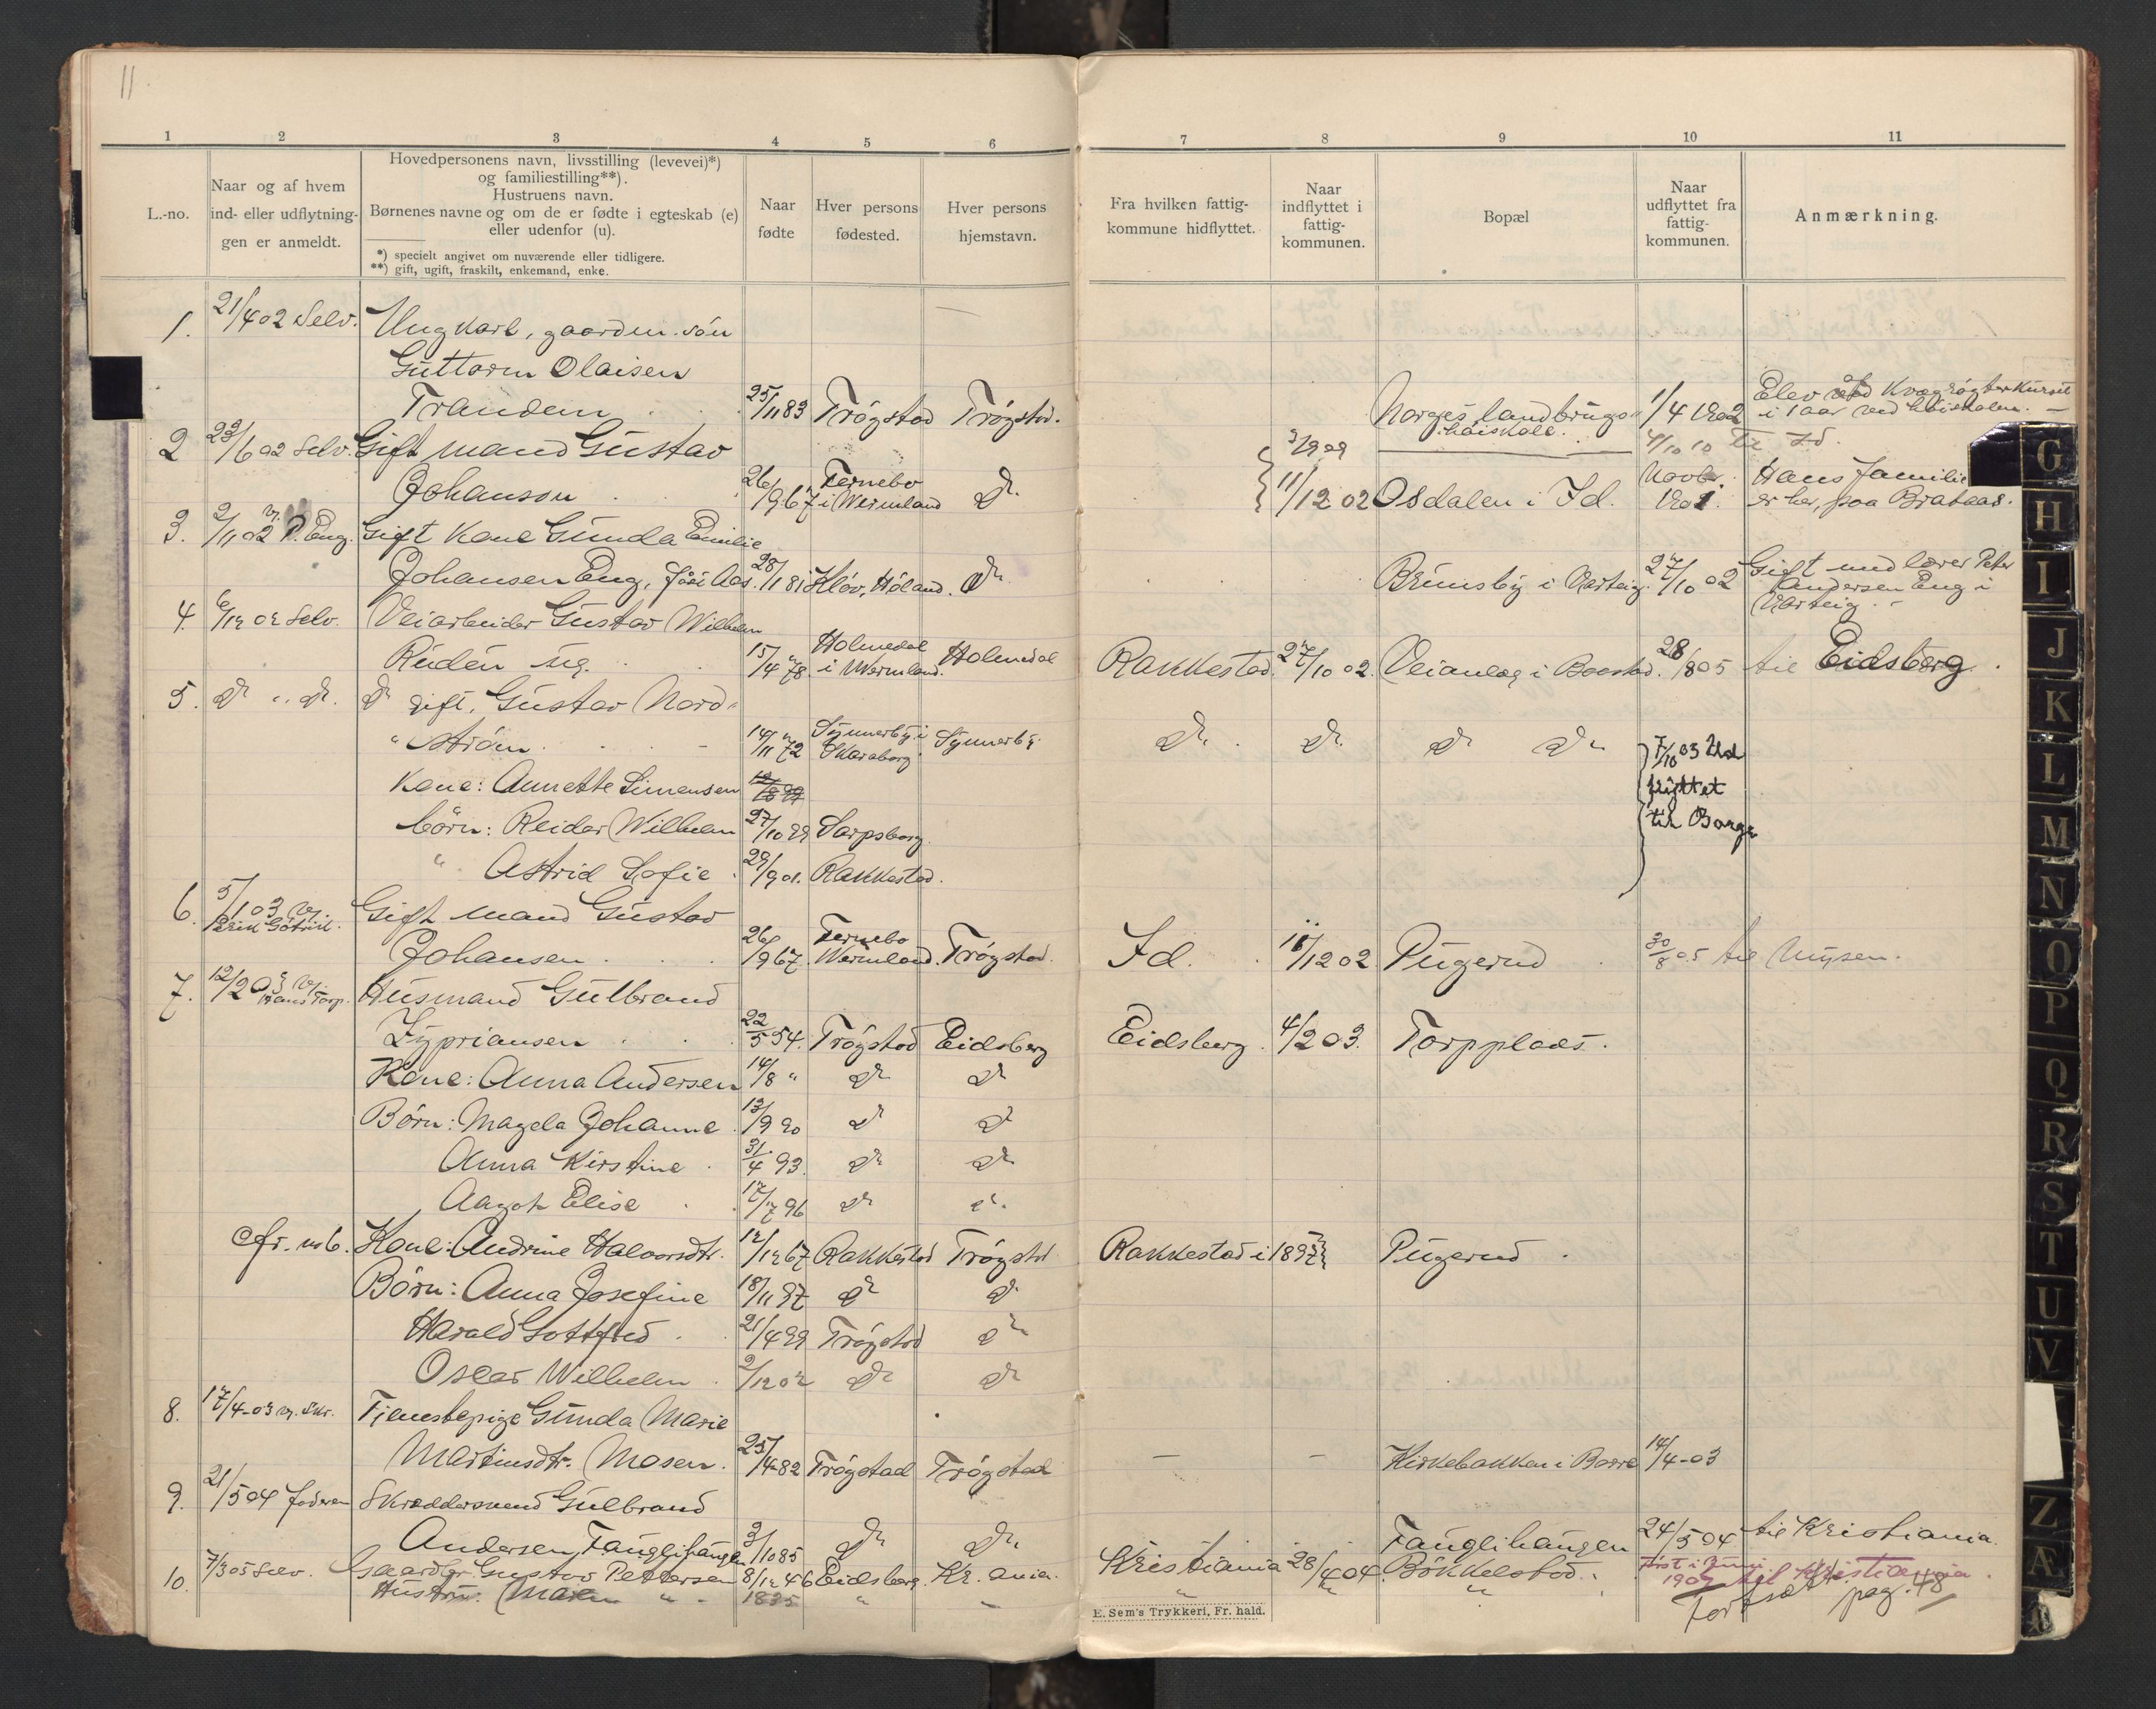 11
1 2 3 4 5 6 7 8 9 10 11
L.-no.
Naar og af hvem
ind- eller udflytnin-
gen er anmeldt.
Hovedpersonens navn, livsstilling (levevei)*)
og familiestilling**).
Hustruens navn.
Børnenes navne og om de er fødte i egteskab (e)
eller udenfor (u).
*) specielt angivet om nuværende eller tidligere.
**) gift, ugift, fraskilt, enkemand, enke.
Naar
fødte
Hver persons
fødested.
Hver persons
hjemstavn.
Fra hvilken fattig-
kommune hidflyttet.
Naar
indflyttet i
fattig-
kommunen.
Bopæl
Naar
udflyttet fra
fattig-
kommunen.
Anmærkning.
1. 21/4 02 Selv. Ungkarl, gaardm. søn
Guttorm Olaisen
Trandem 25/11 83 Trøgstad Trøgstad. Norges landbrugs- 1/4 1902 Elev ved Kvægrøgterkurset
høiskole. i 1 aar ved høiskolen.
2 23/6 02 Selv. Gift mand Gustav 4/10 10 til Id.
Johanson 26/9 67 Ternebo i Wermland Do. 11/12 02 Osdalen i Id. Novbr. 1901. Hans familie
er her, paa Brataas.
3. 2/11 02 P. Eng. Gift Kone Gunda Emilie
Johansen Eng, 28/1 81 Kløv, Høland. Do. Brunsby i Varteig. 27/10 02 Gift med lærer Peter
Andersen Eng i
Varteig.
4. 6/12 02 Selv. Veiarbeider Gustav Wilhelm
Rudén ug. 15/4 78. Holmedal i Wermland. Holmedal Rakkestad. 27/10 02. Veianlæg i Baastad. 28/8 05 til Eidsberg.
5. Do „ Do. Do gift, Gustav Nord-
„ strøm 14/11 72 Synnerby i Skaraborg Synnerby. Do. Do. Do Do 7/10 03 Ud
flyttet
til Borge
Kone: Annette Simensen
børn: Reidar Wilhelm 27/10 99 Sarpsborg.
" Astrid Sofie 29/9 01. Rakkestad.
6. 5/1 03 v. Gift mand Gustav
Johansen 26/9 67. Ternebo Wermland. Trøgstad. Id. 11/12 02 Pugerud 30/8 05 til Mysen.
7. 12/2 03 v. Hans Torp. Husmand Gulbrand
Zypriansen 22/5 54. Trøgstad Eidsberg Eidsberg. 4/2 03. Torpplads.
Kone: Anna Andersen 14/8 " Do Do
Børn: Magda Johanne 13/9 90 Do Do
Anna Kirstine 3/4 93. Do Do
Aagot Elise 17/7 96 Do Do
cfr. no 6. Kone: Andrine Halvorsdtr. 12/12 67 Rakkestad Trøgstd Rakkestad i 1897 Pugerud
Børn: Anna Josefine 18/11 97 Do Do
Harald Gottfred 21/4 99 Trøgstad Do
Oscar Wilhelm 2/12 02 Do Do
8. 17/4-03 v. Skr. Tjenestepige Gunda Marie
Martinsdtr. Mosen. 25/4-82 Trøgstad Trøgstad — — Kirkebakken i Borre 14/4-03
9. 21/5 04 faderen Skræddersvend Gulbrand
Andersen, Fauglihaugen 3/10 85 Do Do. Fauglihaugen 24/5 04 til Kristiania.
10. 7/3 05 Selv. Gaardbr. Gustav Pettersen 8/12 46 Eidsberg. Kr.ania. Kristiania 28/4 04 Bøkkelstad. Først i Juni
190 til Kristiania.
Hustru: Maren " 1835 " " " " " fortsat pag. 48
E. Sem's Trykkeri, Fr. hald.
G
H
I
J
K
L
M
N
O
P
Q
R
S
T
U
V
Z
Æ